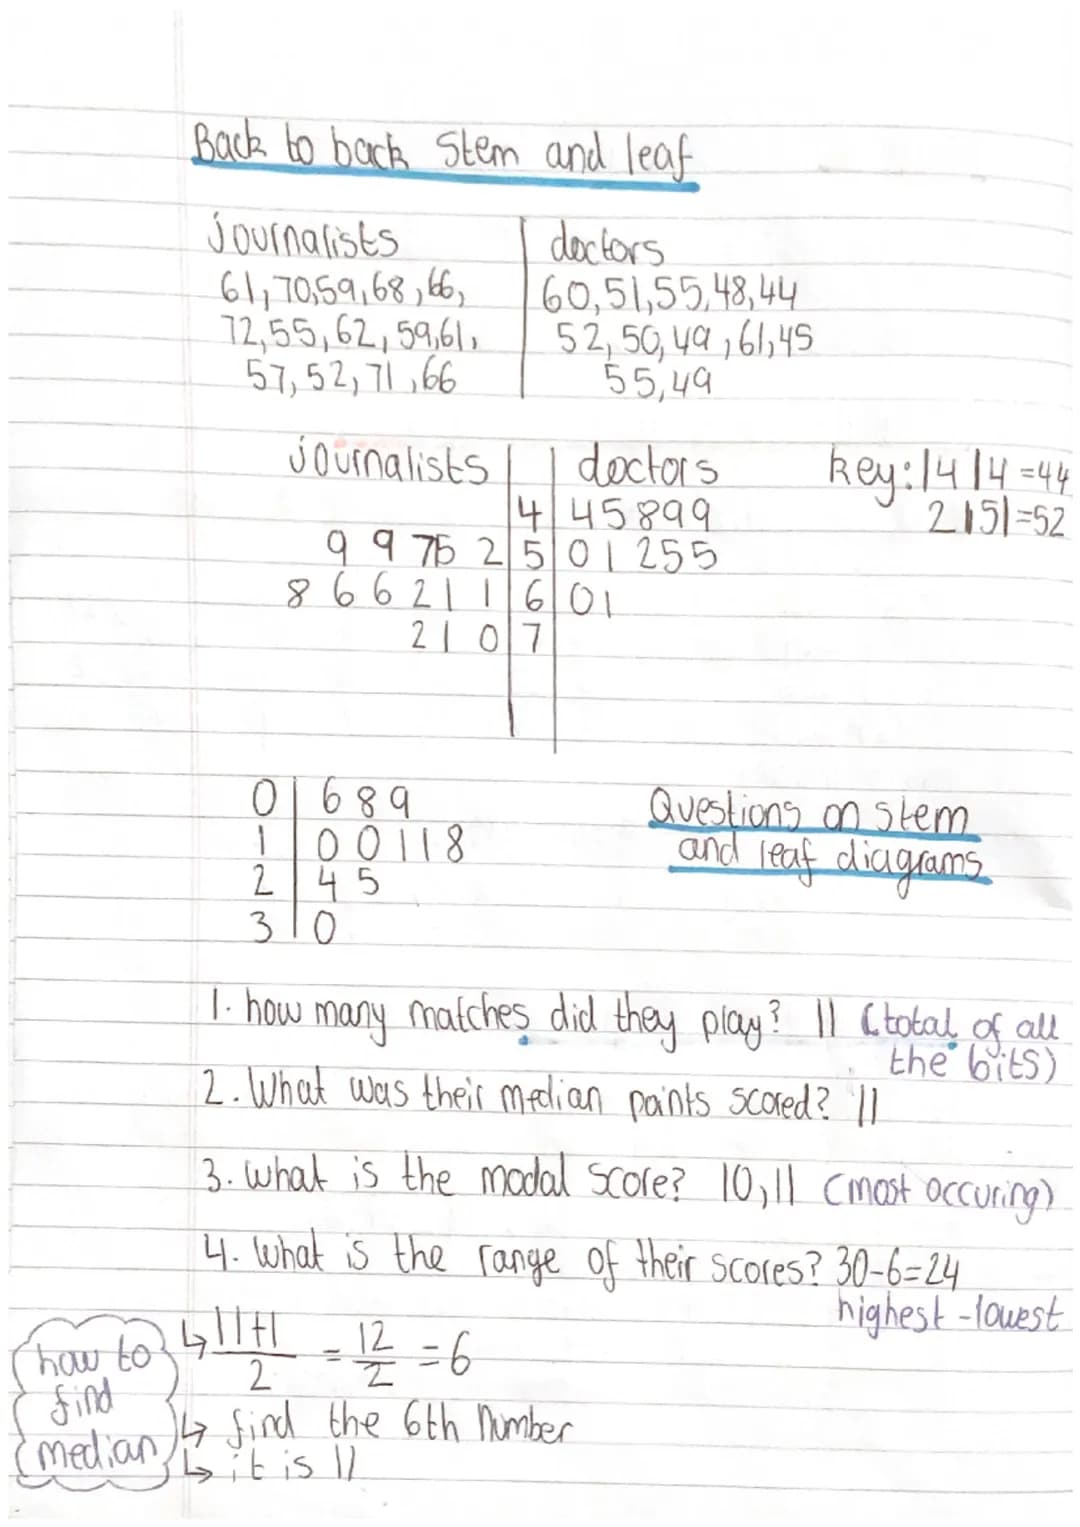 Back to back Stem and leaf
journalists doctors
61,70,59,68,66, 60,51,55,48,44
72,55,62,59,61, 52,50,49,61,45
57,52,71,66 55,49
journalists doctors key:|4|4=44
4 45899 2|5|=52
9 9 75 2 5 01 255
8 6 6 2 1 1 6 01
2 1 0 7
0 6 8 9 Questions on stem
1 0 0 1 1 8 and leaf diagrams
2 4 5
3 0
1. how many matches did they play? 11 (total of all
the bits)
2. What was their median points scored? 11
3. what is the modal score? 10,11 (most occuring)
4. what is the range of their scores? 30-6=24
highest -lowest
how to find median
↳ 11+1/2 = 12/2 = 6
↳ find the 6th number
↳ it is 11